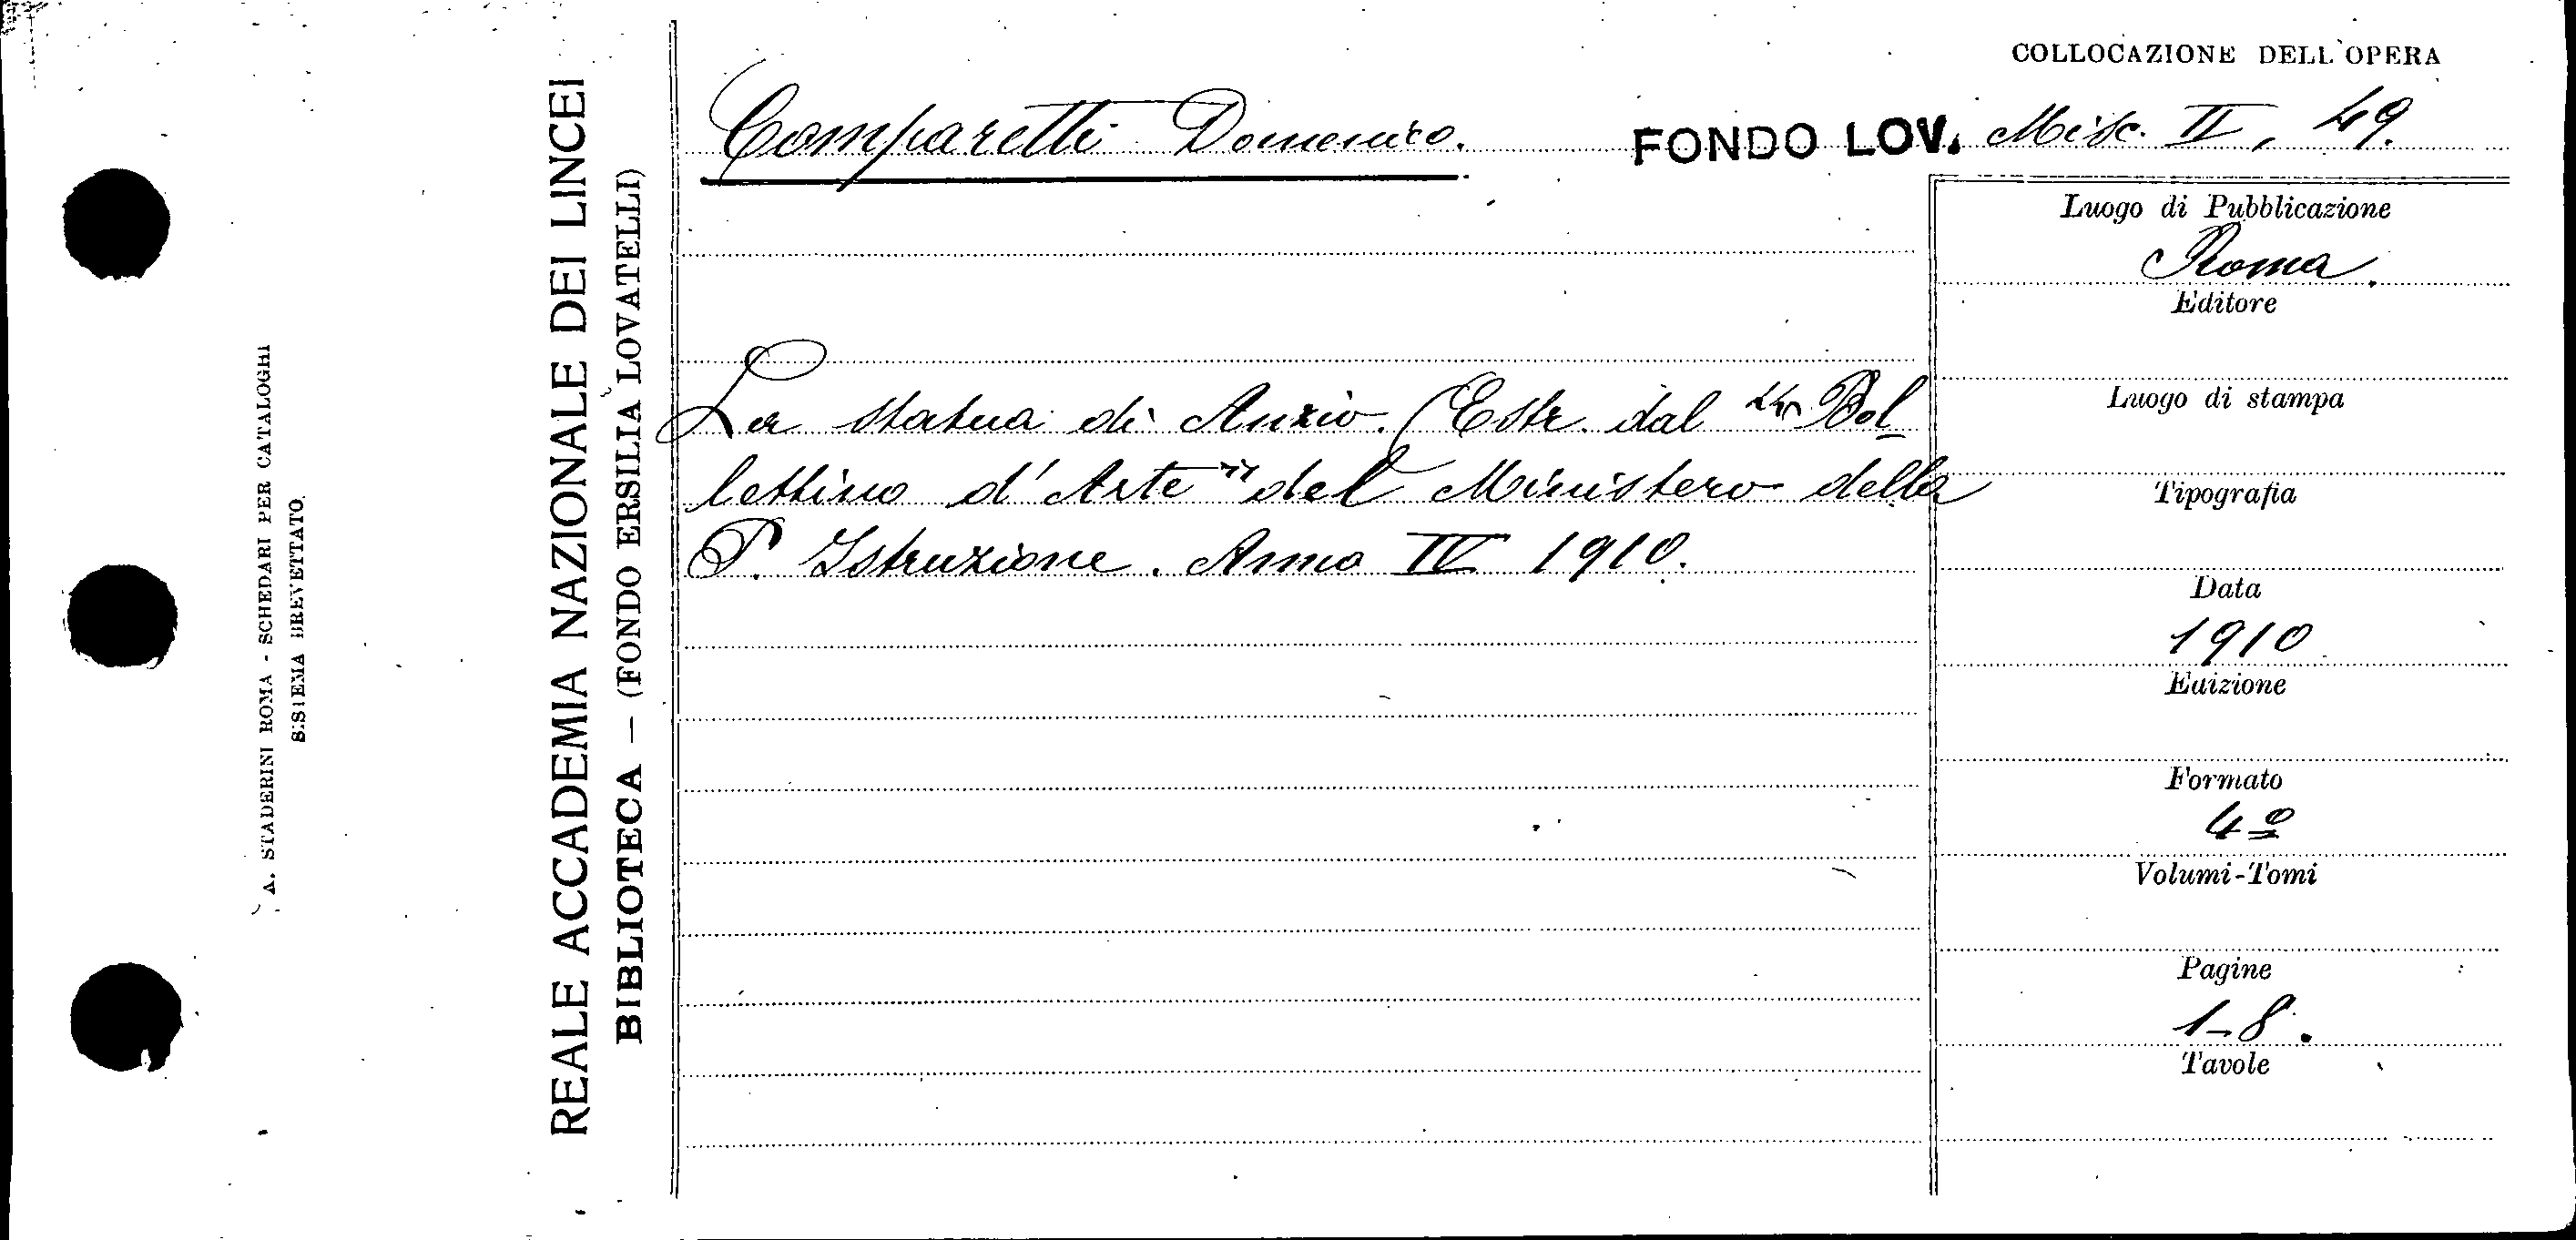 A. STADERINI ROMA - SCHEDARI PER CATALOGHI
SISTEMA BREVETTATO.
REALE ACCADEMIA NAZIONALE DEI LINCEI
BIBLIOTECA — (FONDO ERSILIA LOVATELLI)
COLLOCAZIONE DELL'OPERA
Comparetti Domenico. FONDO LOV. Misc. II, 49.
La statua di Anzio. (Estr. dal "Bol-
lettino d'Arte" del Ministero della
P. Istruzione. Anno IV 1910.
Luogo di Pubblicazione
Roma.
Editore
Luogo di stampa
Tipografia
Data
1910
Edizione
Formato
4º
Volumi-Tomi
Pagine
1-8.
Tavole